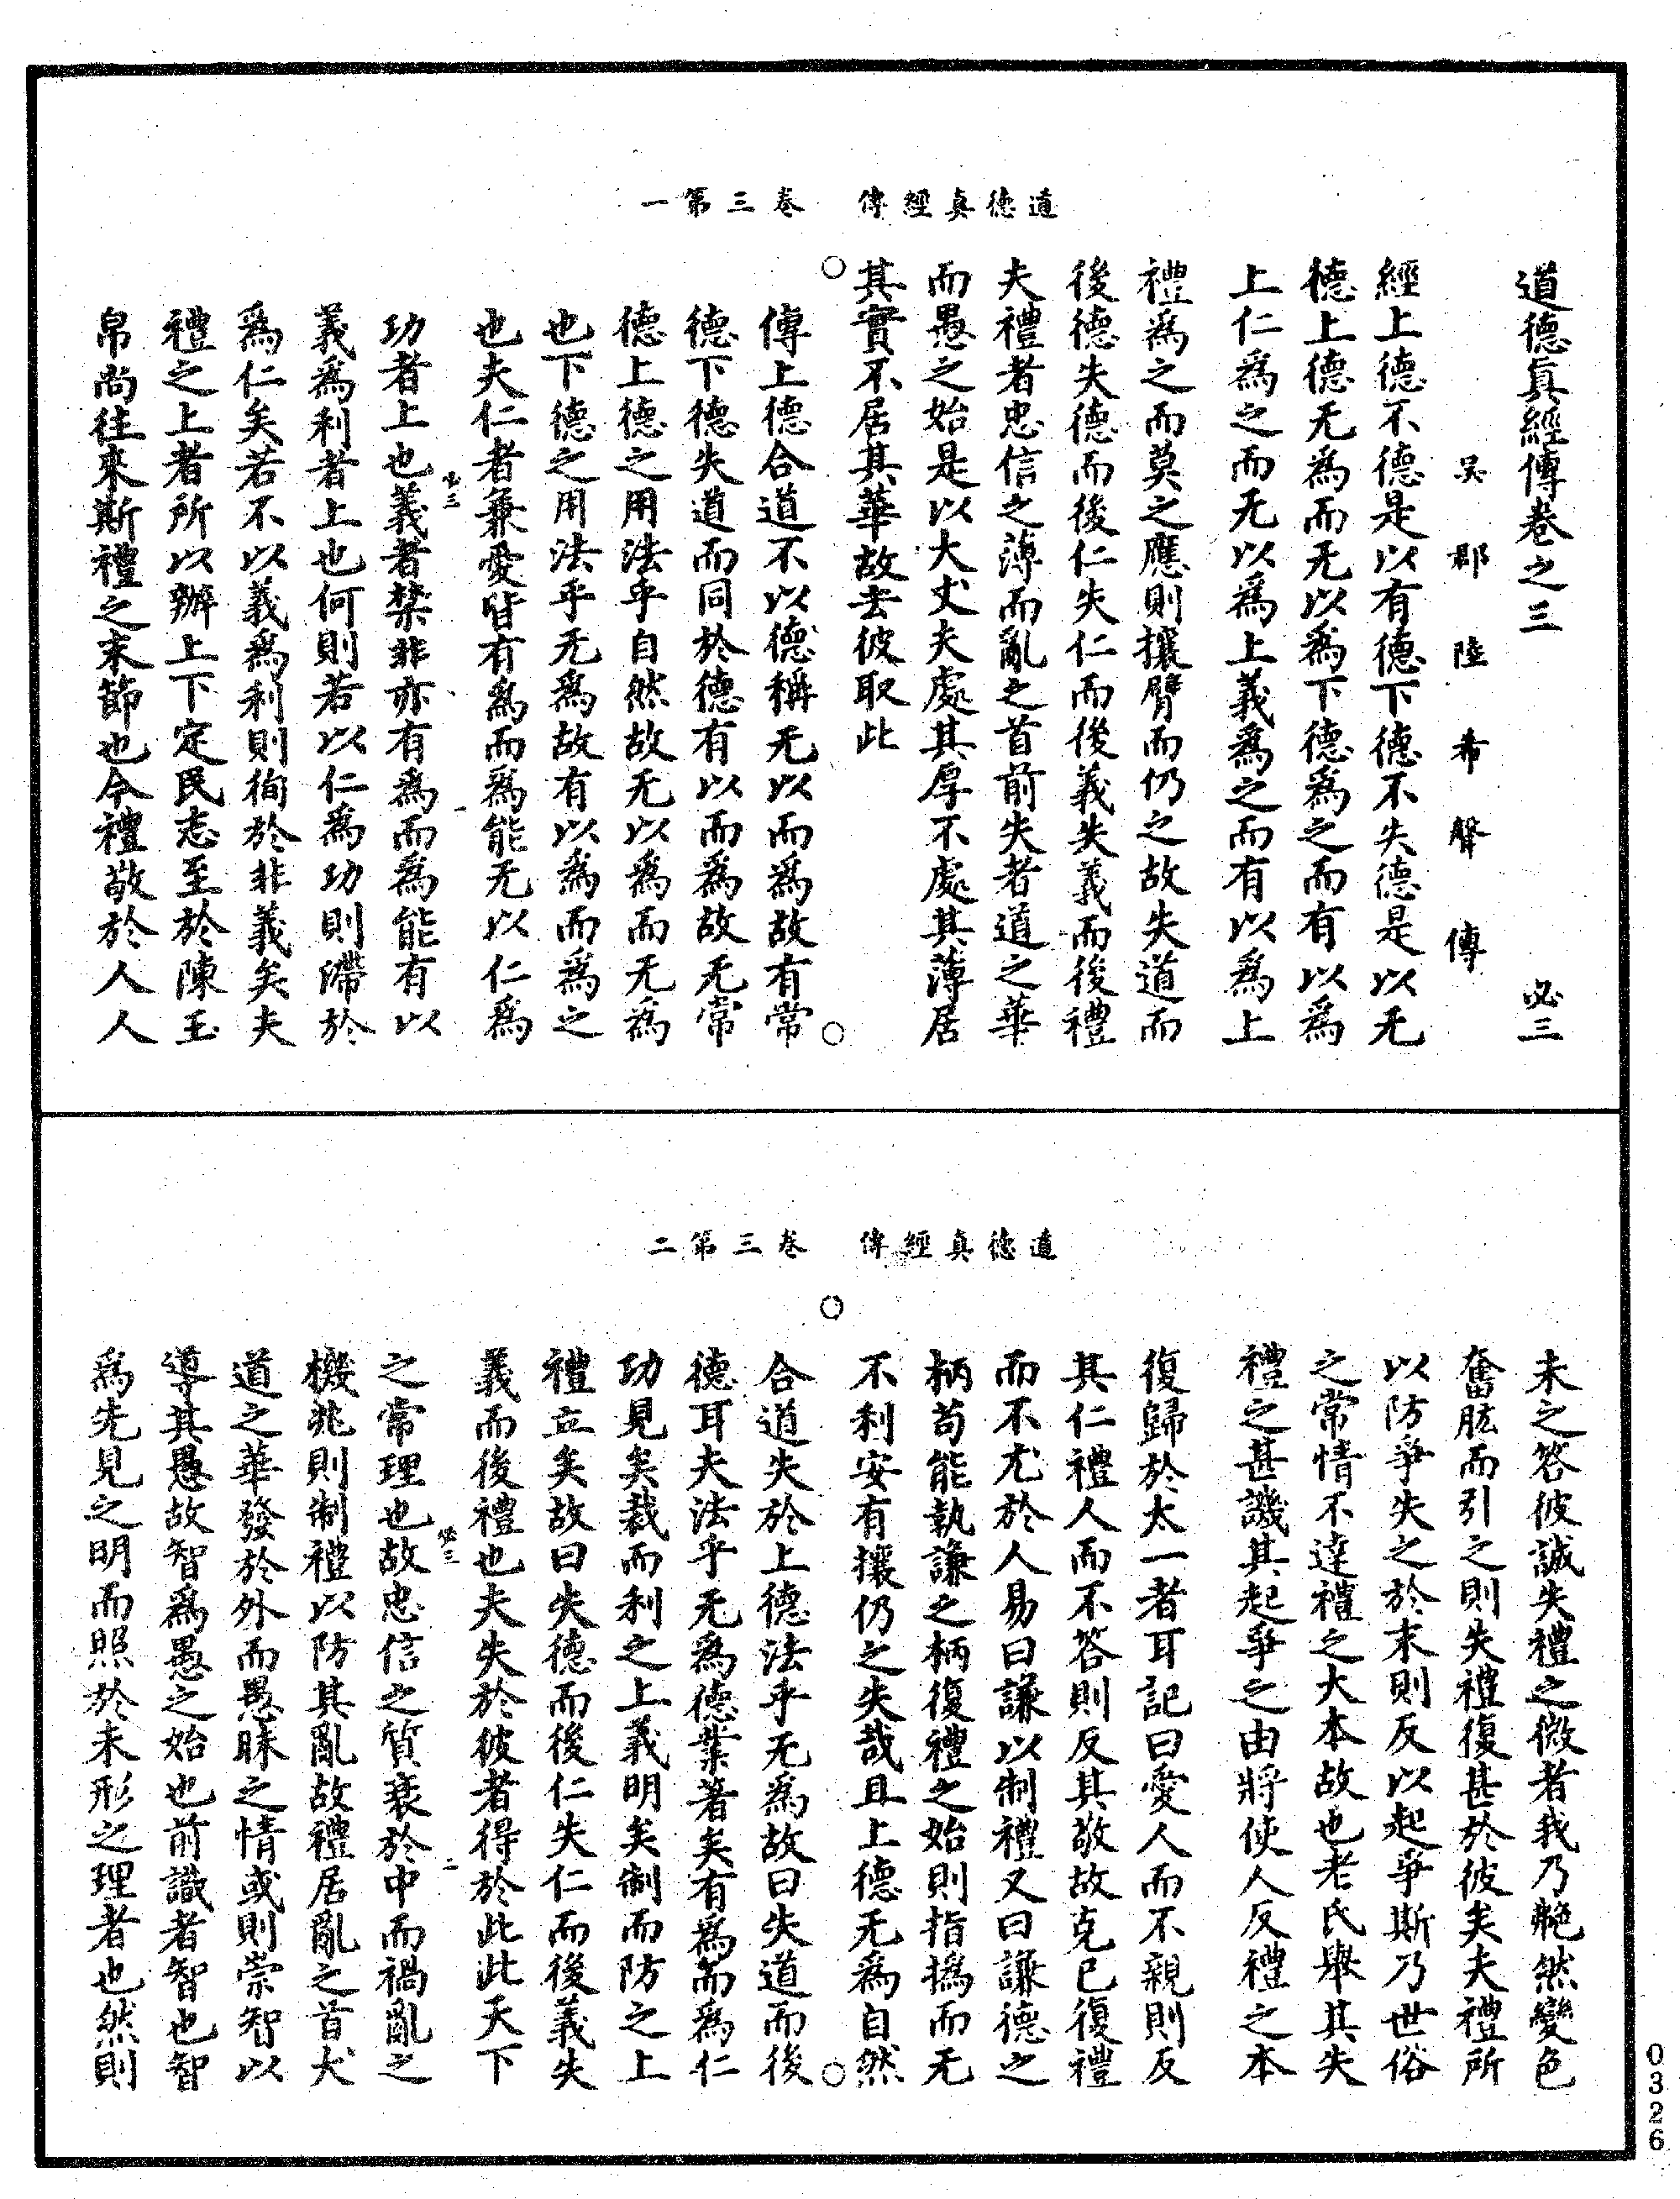 道德真經傳　卷三第一
道德真經傳卷之三　必三
吴郡陸希聲傳
經上德不德是以有德下德不失德是以无
德上德无爲而无以爲下德爲之而有以爲
上仁爲之而无以爲上義爲之而有以爲上
禮爲之而莫之應則攘臂而仍之故失道而
後德失德而後仁失仁而後義失義而後禮
夫禮者忠信之薄而亂之首前失者道之華
而愚之始是以大丈夫處其厚不處其薄居
其實不居其華故去彼取此
傳上德合道不以德稱无以而爲故有常
德下德失道而同於德有以而爲故无常
德上德之用法乎自然故无以爲而无爲
也下德之用法乎无爲故有以爲而爲之
也夫仁者兼愛皆有爲而爲能无以仁爲
必三　一
功者上也義者禁非亦有爲而爲能有以
義爲利者上也何則若以仁爲功則滯於
爲仁矣若不以義爲利則徇於非義矣夫
禮之上者所以辦上下定民志至於陳玉
帛尚往來斯禮之末節也今禮敬於人人
道德真經傳　卷三第二
未之答彼誠失禮之微者我乃艴然變色
奮肱而引之則失禮復甚於彼矣夫禮所
以防爭失之於末則反以起爭斯乃世俗
之常情不達禮之大本故也老氏舉其失
禮之甚譏其起爭之由將使人反禮之本
復歸於太一者耳記曰愛人而不親則反
其仁禮人而不答則反其敬故克已復禮
而不尤於人易曰謙以制禮又曰謙德之
柄苟能執謙之柄復禮之始則指撝而无
不利安有攘仍之失哉且上德无爲自然
合道失於上德法乎无爲故曰失道而後
德耳夫法乎无爲德業著矣有爲而爲仁
功見矣裁而利之上義明矣制而防之上
禮立矣故曰失德而後仁失仁而後義失
義而後禮也夫失於彼者得於此此天下
必三　二
之常理也故忠信之質衰於中而禍亂之
機兆則制禮以防其亂故禮居亂之首犬
道之華發於外而愚昧之情或則崇智以
導其愚故智爲愚之始也前識者智也智
爲先見之明而照於未形之理者也然則
0326